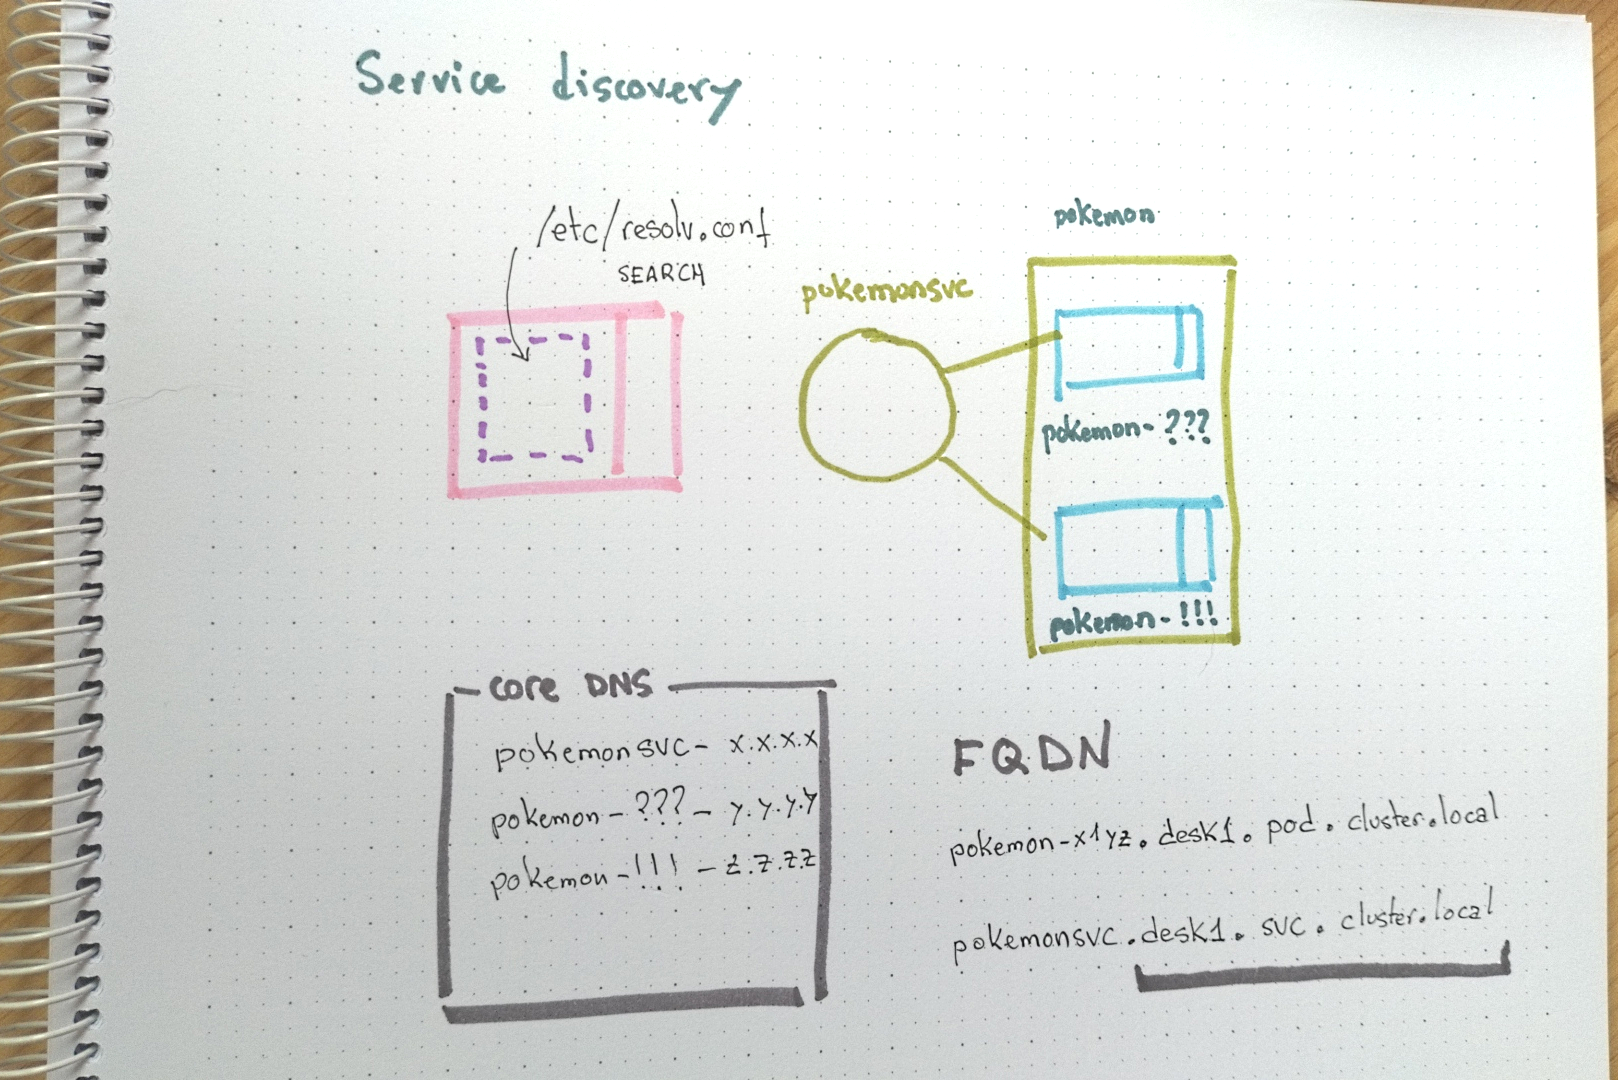 Service discovery
/etc/resolv.conf
SEARCH
pokemonsvc
pokemon
pokemon-???
pokemon-!!!
core DNS
pokemonsvc- x.x.x.x
pokemon-???- y.y.y.y
pokemon-!!! - z.z.z.z
FQDN
pokemon-x1yz.desk1.pod.cluster.local
pokemonsvc.desk1.svc.cluster.local